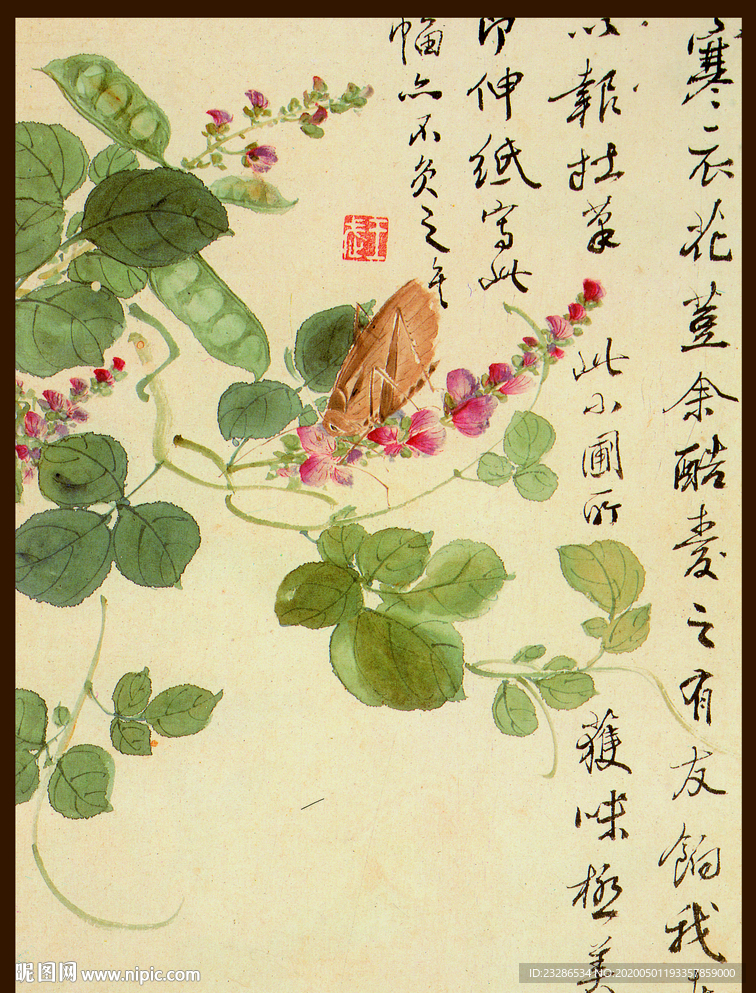 寒衣花荳余酷愛之有友餉我
以報拈筆 此小圃所 獲味極美
即伸紙寫此
幅亦不負之矣
昵图网 www.nipic.com
ID:23286534 NO:20200501193357859000